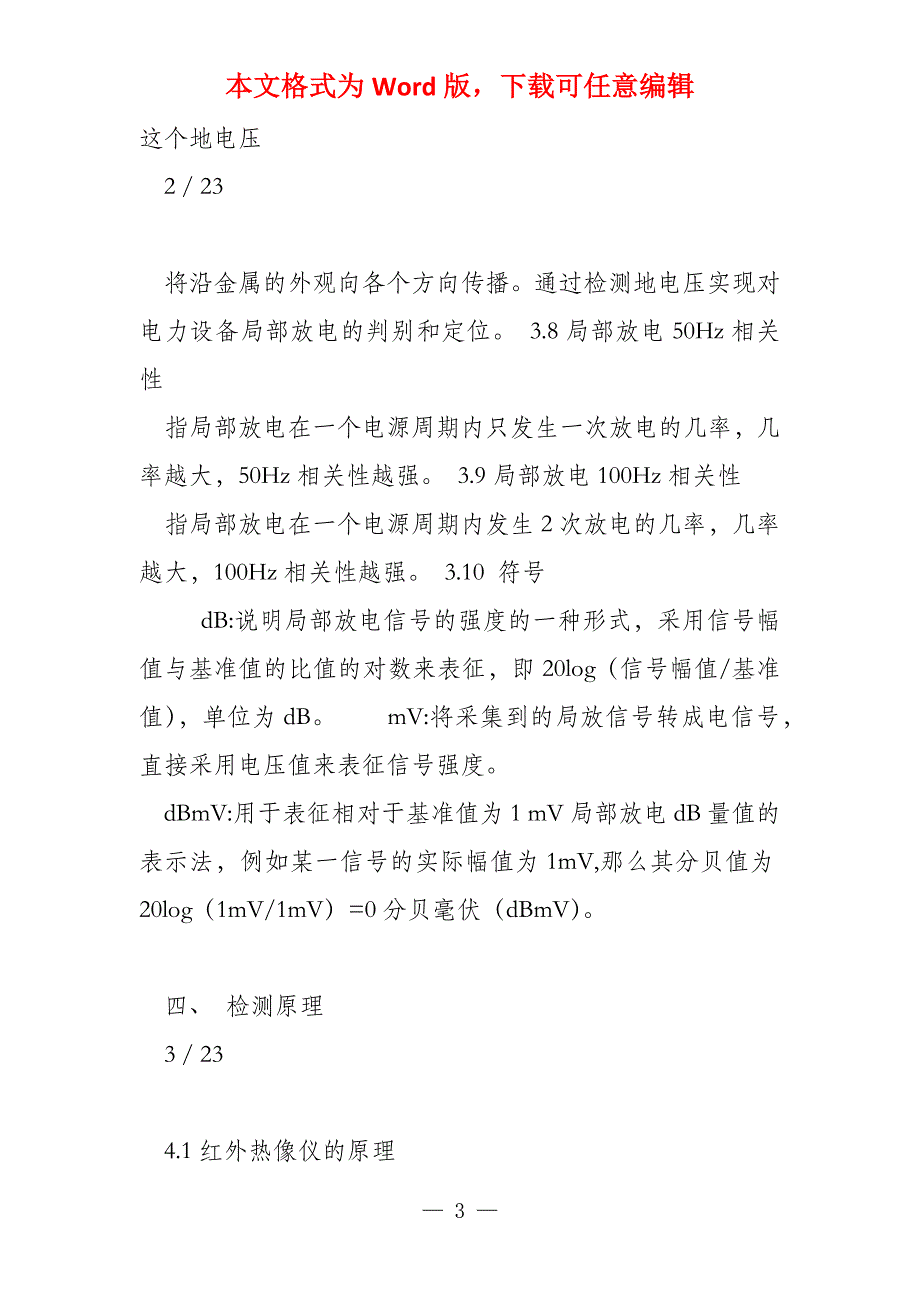 本文格式为 Word 版，下载可任意编辑
这个地电压
2 / 23
将沿金属的外观向各个方向传播。通过检测地电压实现对
电力设备局部放电的判别和定位。 3.8 局部放电 50Hz 相关
性
指局部放电在一个电源周期内只发生一次放电的几率，几
率越大，50Hz 相关性越强。 3.9 局部放电 100Hz 相关性
指局部放电在一个电源周期内发生 2 次放电的几率，几率
越大，100Hz 相关性越强。 3.10 符号
dB:说明局部放电信号的强度的一种形式，采用信号幅
值与基准值的比值的对数来表征，即 20log（信号幅值/基准
值），单位为 dB。 mV:将采集到的局放信号转成电信号，
直接采用电压值来表征信号强度。
dBmV:用于表征相对于基准值为 1 mV 局部放电 dB 量值的
表示法，例如某一信号的实际幅值为 1mV,那么其分贝值为
20log（1mV/1mV）=0 分贝毫伏（dBmV）。
四、 检测原理
3 / 23
4.1 红外热像仪的原理
— 3 —